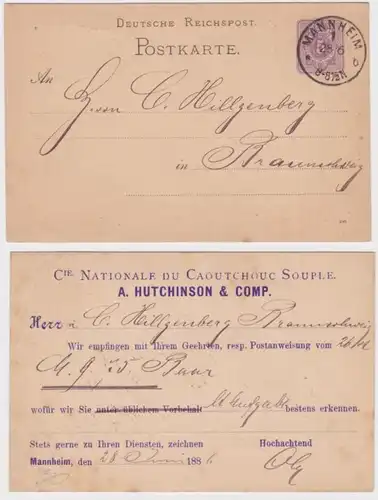 DEUTSCHE REICHSPOST.
POSTKARTE.
MANNHEIM
28 6
An
Herrn C. Hillgenberg
in Braunschweig
CIE. NATIONALE DU CAOUTCHOUC SOUPLE.
A. HUTCHINSON & COMP.
Herr C. Hillgenberg Braunschweig
Wir empfingen mit Ihrem Geehrten, resp. Postanweisung vom
M. 9. 25 Baar
wofür wir Sie unter üblichem Vorbehalt bestens erkennen.
Stets gerne zu Ihren Diensten, zeichnen Hochachtend
Mannheim, den 28 Juni 188